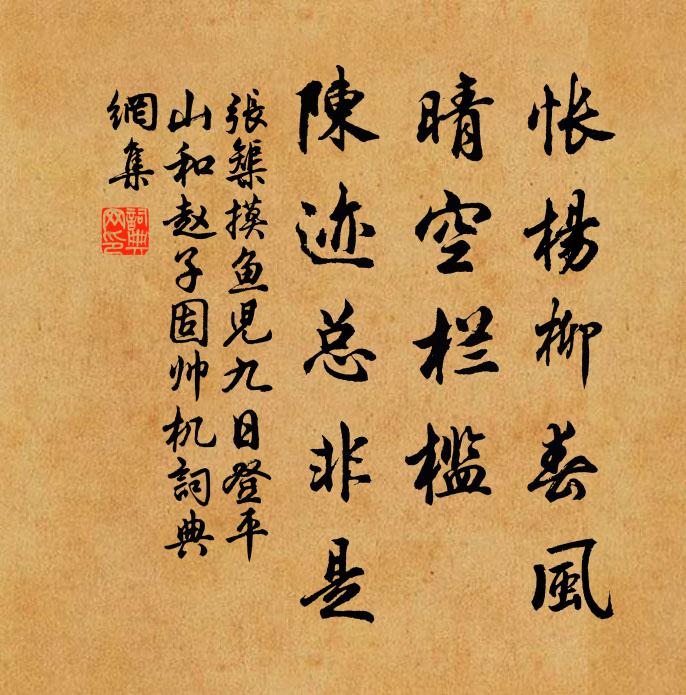 怅楊柳春風
晴空栏槛
陳迹总非是
張榘摸魚児九日登平
山和赵子固帅机詞典
網集
詞典
网印